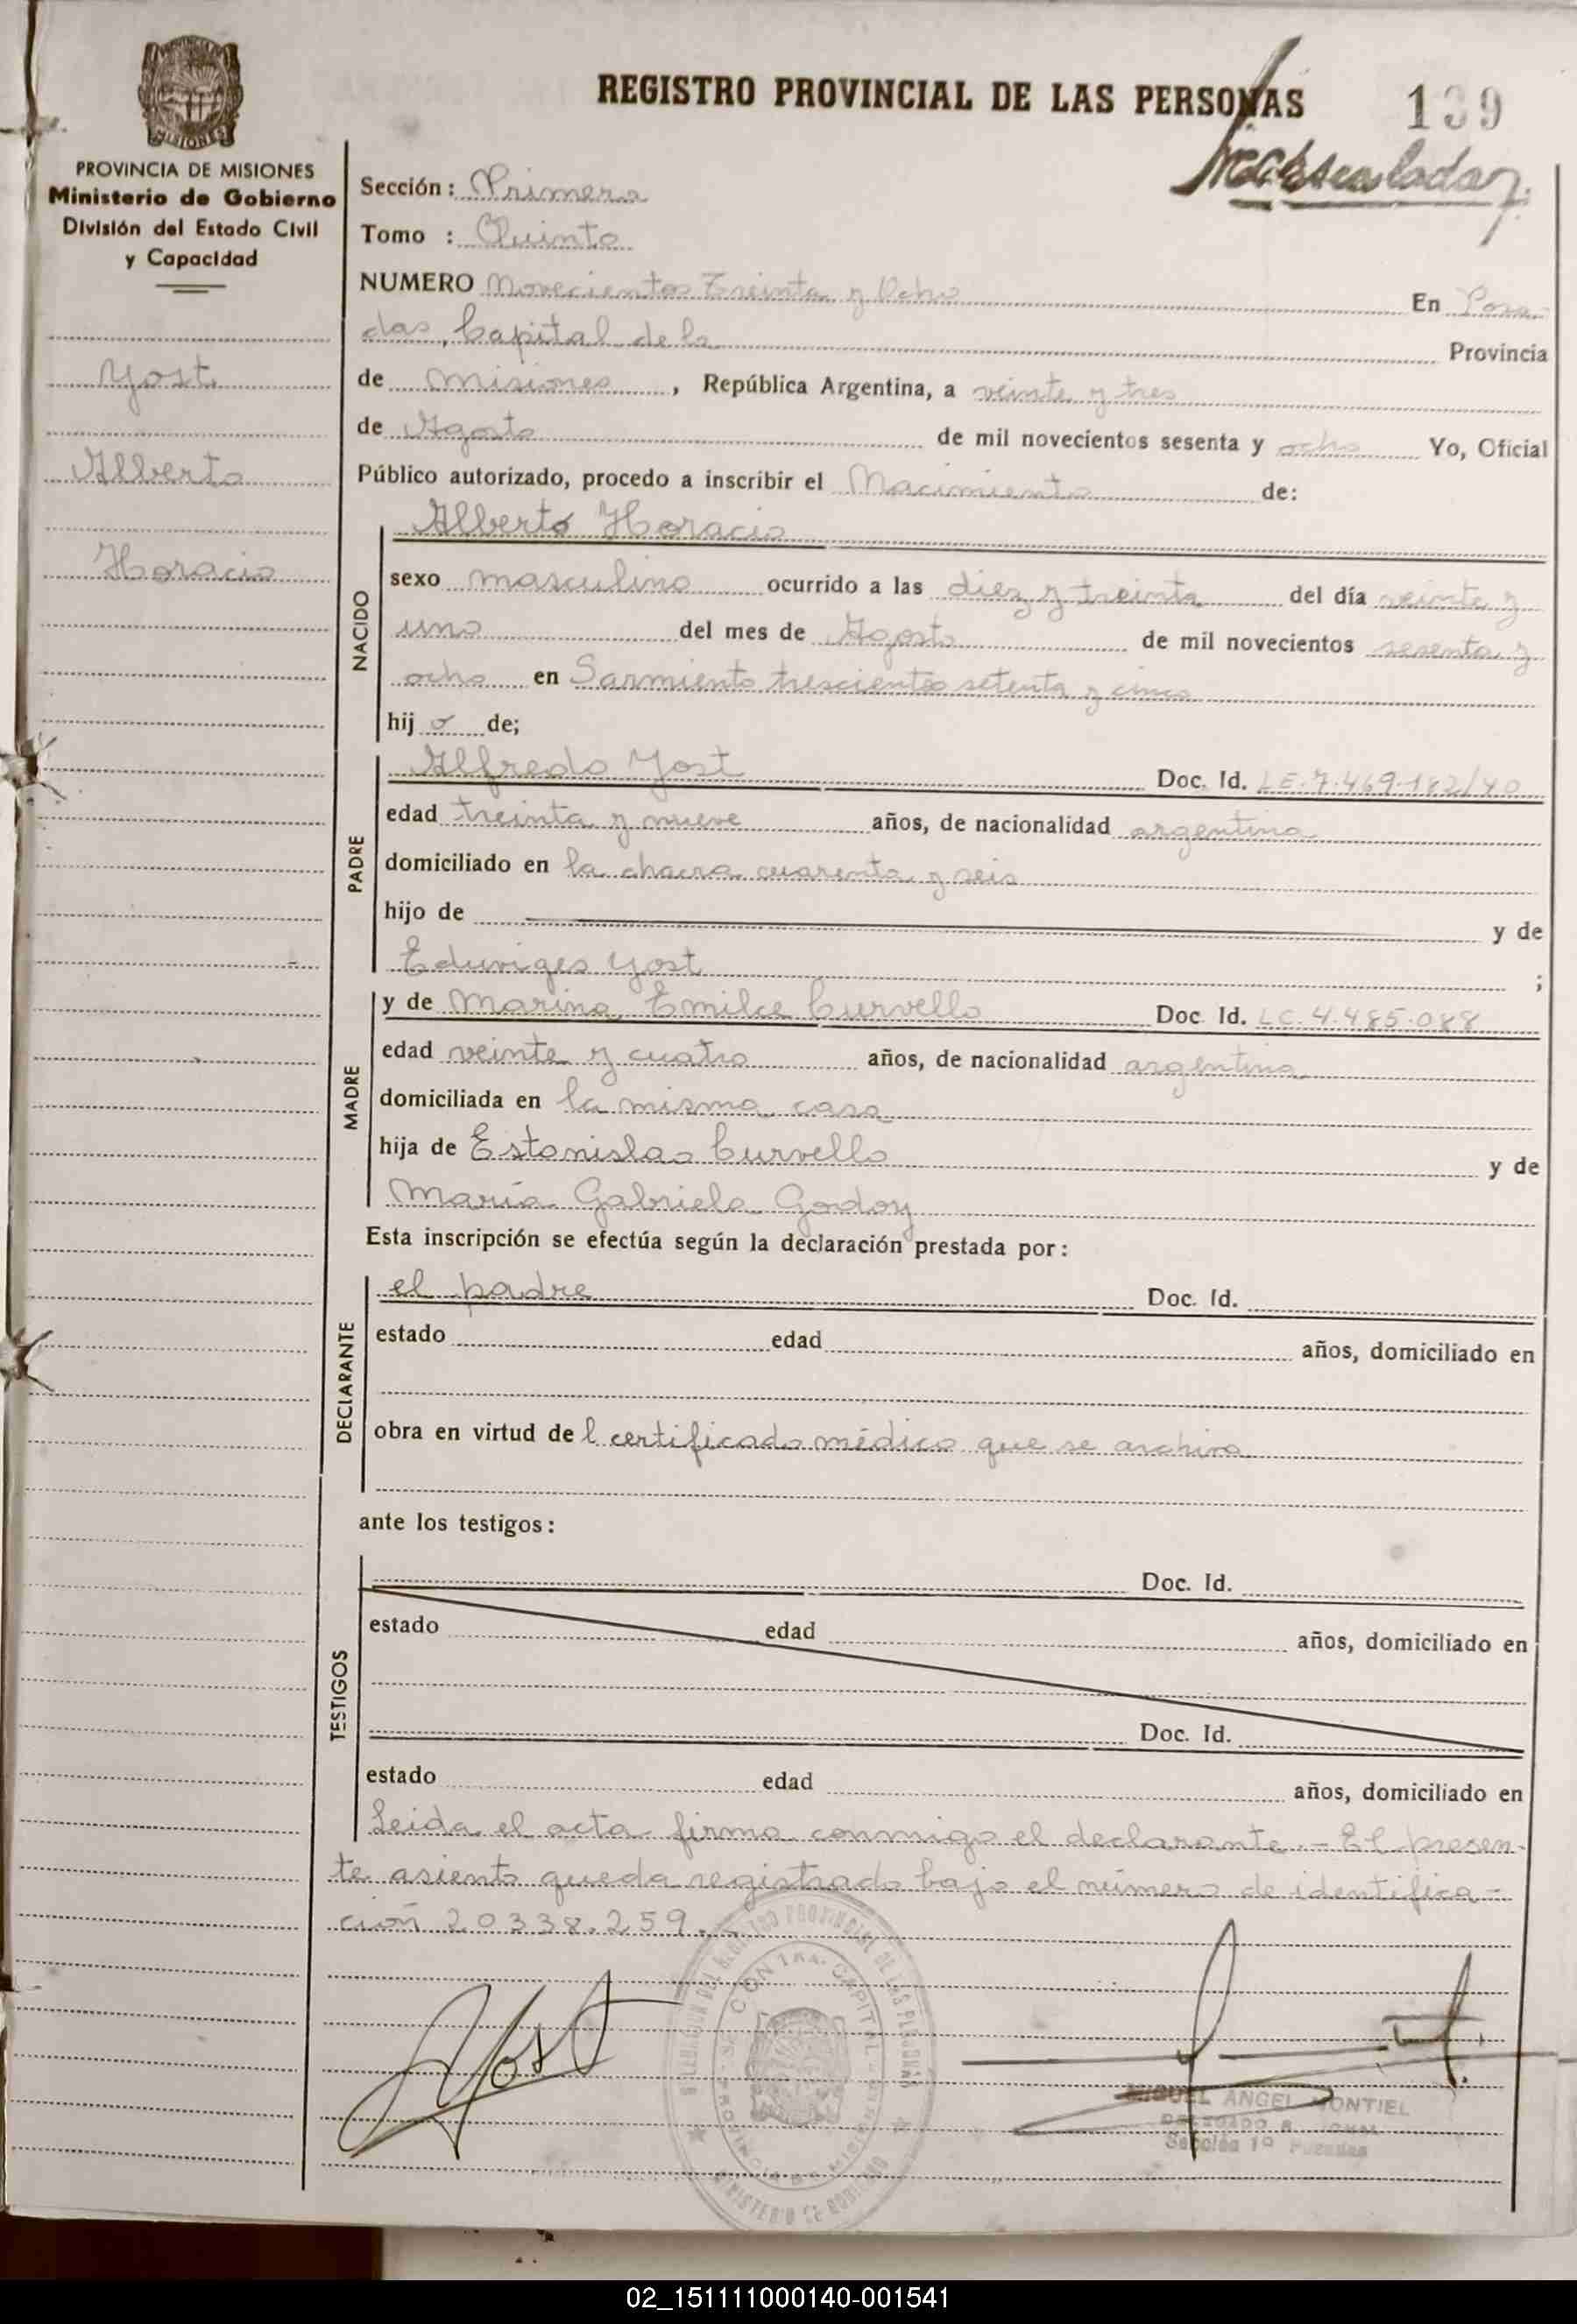 REGISTRO PROVINCIAL DE LAS PERSONAS
139
MISIONES
PROVINCIA DE MISIONES
Ministerio de Gobierno
División del Estado Civil
y Capacidad
Yost
Alberto
Horacio
Sección: Primera
Tomo : Quinto
NUMERO Novecientos Treinta y Ocho En Posa-
das, Capital de la Provincia
de Misiones, República Argentina, a veinte y tres
de Agosto de mil novecientos sesenta y ocho Yo, Oficial
Público autorizado, procedo a inscribir el Nacimiento de:
NACIDO
Alberto Horacio
sexo masculino ocurrido a las diez y treinta del día veinte y
uno del mes de Agosto de mil novecientos sesenta y
ocho en Sarmiento trescientos setenta y cinco
hij o de;
PADRE
Alfredo Yost Doc. Id. LE.7.469.182/40
edad treinta y nueve años, de nacionalidad argentina
domiciliado en la chacra cuarenta y seis
hijo de y de
Eduviges Yost ;
MADRE
y de Marina Emilce Curvello Doc. Id. LC.4.485.088
edad veinte y cuatro años, de nacionalidad argentina
domiciliada en la misma casa
hija de Estanislao Curvello y de
María Gabriela Godoy
Esta inscripción se efectúa según la declaración prestada por:
DECLARANTE
el padre Doc. Id.
estado edad años, domiciliado en
obra en virtud de l certificado médico que se archiva
ante los testigos:
TESTIGOS
Doc. Id.
estado edad años, domiciliado en
Doc. Id.
estado edad años, domiciliado en
Leida el acta firma conmigo el declarante.- El presen-
te asiento queda registrado bajo el número de identifica-
ción 20338.259.
Yost
MIGUEL ANGEL MONTIEL
Sección 1º Posadas
02_151111000140-001541